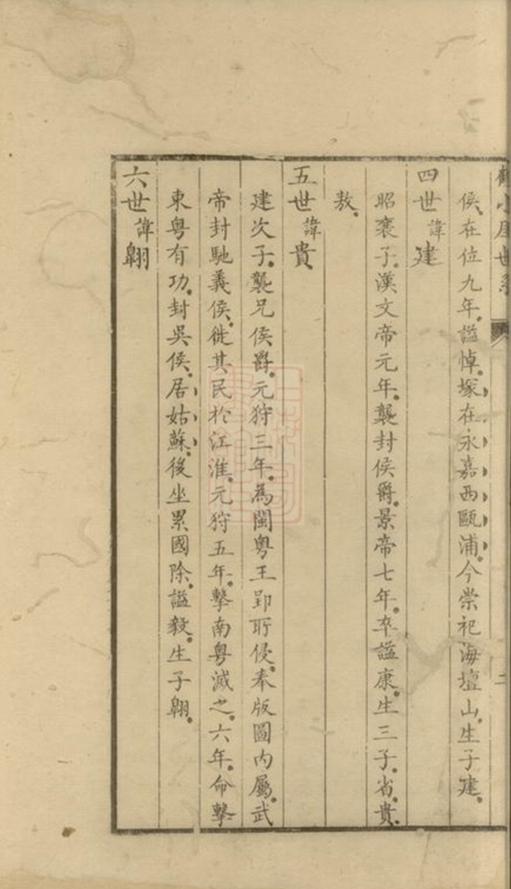 侯在位九年諡悼塚在永嘉西甌浦今崇祀海壇山生子建
四世諱建
昭襄子漢文帝元年襲封侯爵景帝七年卒諡康生三子省貴
敖
五世諱貴
建次子襲兄侯爵元狩三年為閩粵王郢所侵奉版圖內屬武
帝封馳義侯徙其民於江淮元狩五年擊南粵滅之六年命擊
東粵有功封吳侯居姑蘇後坐累國除諡毅生子翱
六世諱翱